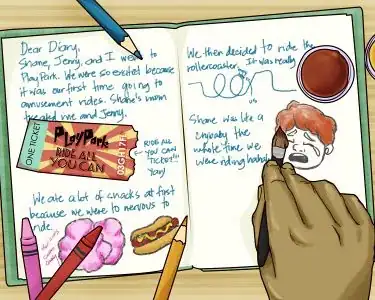 Dear Diary,
Shane, Jenny, and I went to
PlayPark. We were so excited because
it was our first time going to
amusement rides. Shane's mom
treated me and Jenny.
ONE TICKET
PlayPark
RIDE ALL
YOU CAN
03GA17F
← RIDE ALL
YOU CAN
TICKET!!!
Yay!
We ate a lot of snacks at first
because we were to nervous to
ride.
Cotton
Candy
We then decided to ride the
rollercoaster. It was really
us
Shane was like a
crybaby the
whole time we
were riding haha!